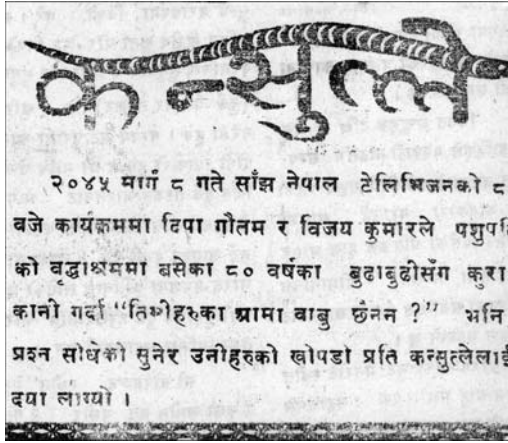 कन्सुत्ले
२०४५ मार्ग ८ गते साँझ नेपाल टेलिभिजनको ८
बजे कार्यक्रममा दिपा गौतम र विजय कुमारले पशुपति
को बद्धाश्रममा बसेका ८० वर्षका बुढाबुढीसँग कुरा
कानी गर्दा “तिमीहरुका आमा बाबु छैनन ?” भनि
प्रश्न सोधेको सुनेर उनीहरुको खोपडी प्रति कन्सुत्लेलाई
दया लाग्यो ।